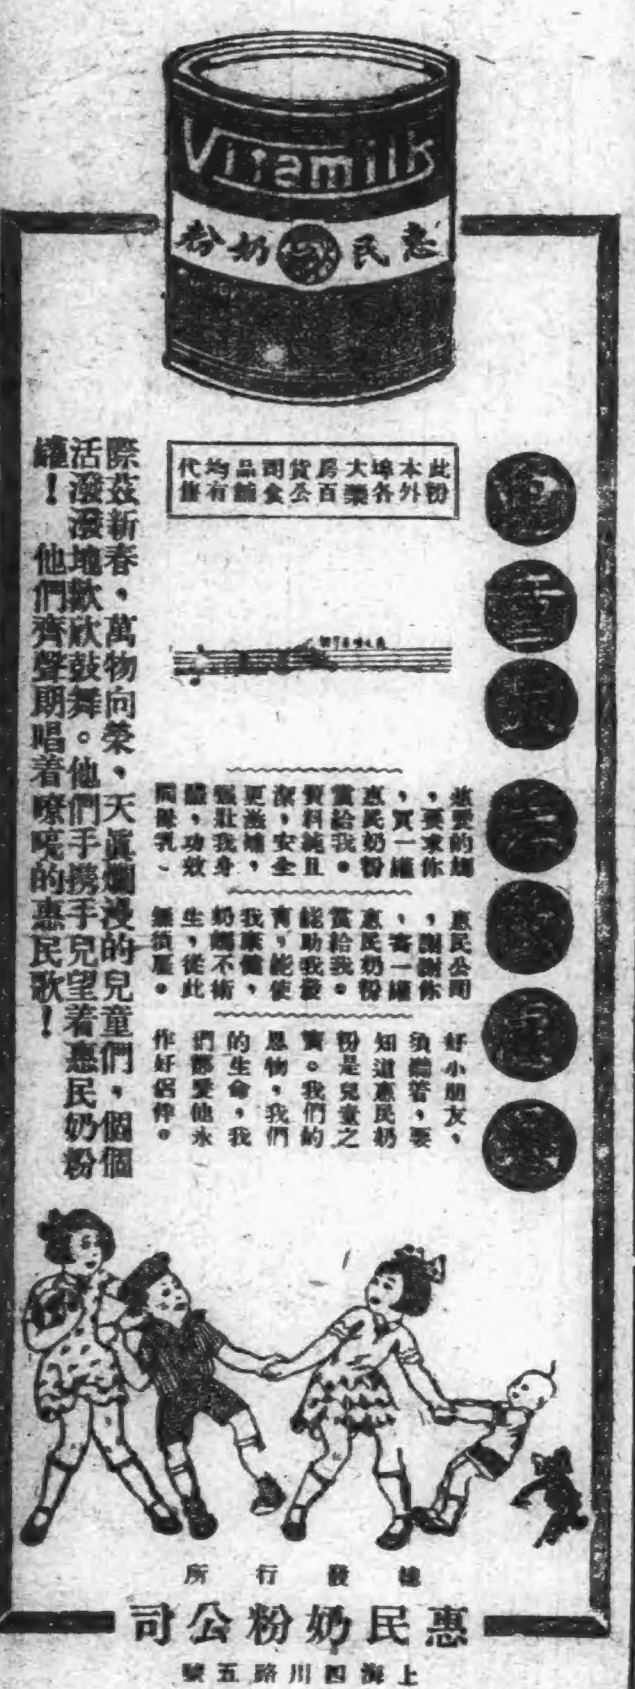 Vitamilk
惠民奶粉
此粉
本外
埠各
大藥
房百
貨公
司食
品舖
均有
代售
慈愛的媽
，要求你
，買一罐
惠民奶粉
賞給我。
質料純且
潔，安全
更滋補，
強壯我身
體，功效
同母乳、
惠民公司
，謝謝你
，寄一罐
惠民奶粉
賞給我。
能助我發
育，能使
我康健，
奶媽不衛
生，從此
無須雇。
好小朋友，
須聽著，要
知道惠民奶
粉是兒童之
寶。我們的
恩物，我們
的生命，我
們都愛他永
作好侶伴。
際茲新春，萬物向榮，天眞爛漫的兒童們，個個
活潑潑地歡欣鼓舞。他們手攜手兒望着惠民奶粉
罐！　他們齊聲朗唱着嘹喨的惠民歌！
總發行所
惠民奶粉公司
上海四川路五號